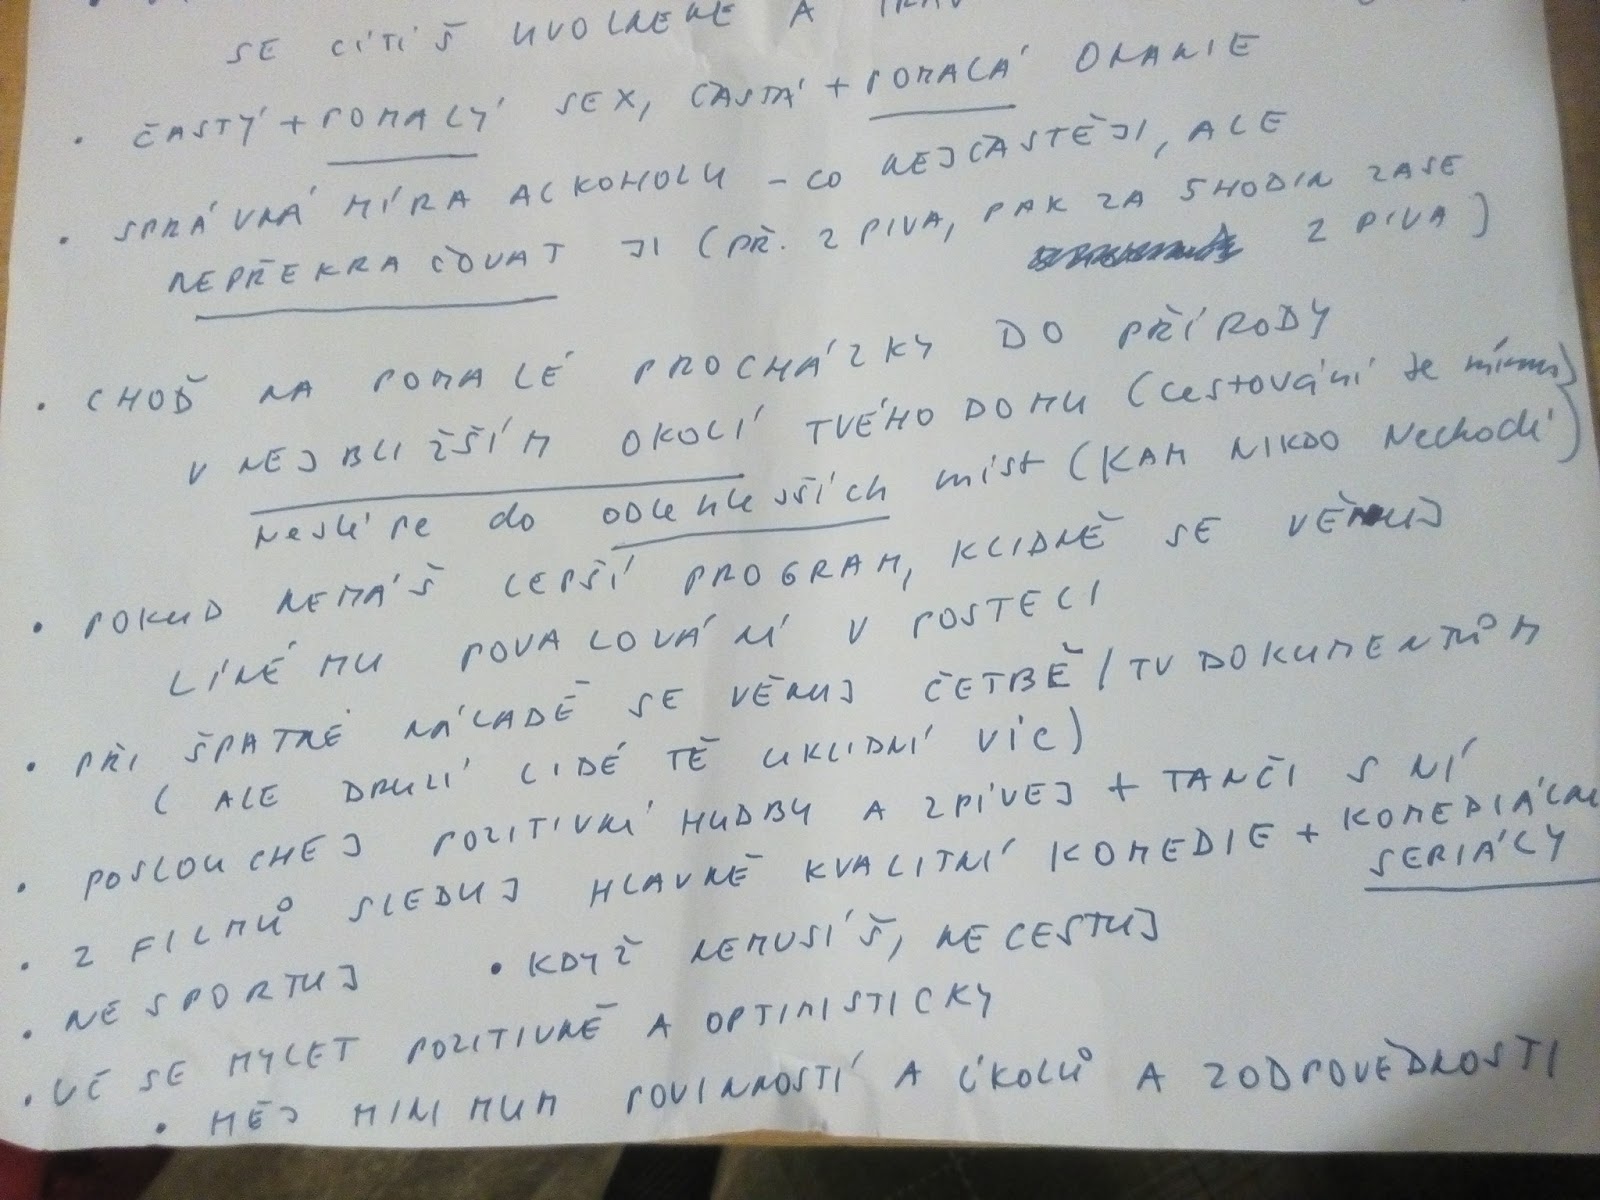 SE CÍTÍŠ UVOLNĚNĚ A
• ČASTÝ + POMALÝ SEX, ČASTÁ + POMALÁ ONANIE
• SPRÁVNÁ MÍRA ALKOHOLU - CO NEJČASTĚJI, ALE
NEPŘEKRAČOVAT JI (PŘ. 2 PIVA, PAK ZA 5 HODIN ZASE
2 PIVA)
• CHOĎ NA POMALÉ PROCHÁZKY DO PŘÍRODY
V NEJBLIŽŠÍM OKOLÍ TVÉHO DOMU (cestování je mínus)
Nejlépe do ODLEHLEJŠÍCH míst (KAM NIKDO Nechodí)
• POKUD NEMÁŠ LEPŠÍ PROGRAM, KLIDNĚ SE VĚNUJ
LÍNÉMU POVALOVÁNÍ V POSTELI
• PŘI ŠPATNÉ NÁLADĚ SE VĚNUJ ČETBĚ / TV DOKUMENTŮM
( ALE DRUZÍ LIDÉ TĚ UKLIDNÍ VÍC)
• POSLOUCHEJ POZITIVNÍ HUDBU A ZPÍVEJ + TANČI S NÍ
• Z FILMŮ SLEDUJ HLAVNĚ KVALITNÍ KOMEDIE + KOMEDIÁLNÍ
SERIÁLY
• NESPORTUJ • KDYŽ NEMUSÍŠ, NECESTUJ
• UČ SE MYSLET POZITIVNĚ A OPTIMISTICKY
• MĚJ MINIMUM POVINNOSTÍ A ÚKOLŮ A ZODPOVĚDNOSTI